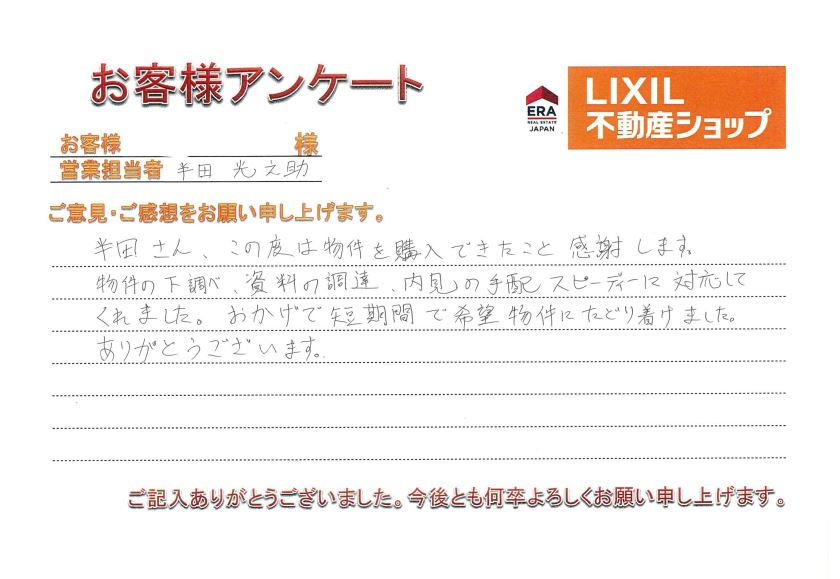 お客様アンケート
ERA
REAL ESTATE
JAPAN
LIXIL
不動産ショップ
お客様 様
営業担当者 半田 光之助
ご意見・ご感想をお願い申し上げます。
半田さん、この度は物件を購入できたこと感謝します。
物件の下調べ、資料の調達、内見の手配スピーディーに対応して
くれました。おかげで短期間で希望物件にたどり着けました。
ありがとうございます。
ご記入ありがとうございました。今後とも何卒よろしくお願い申し上げます。